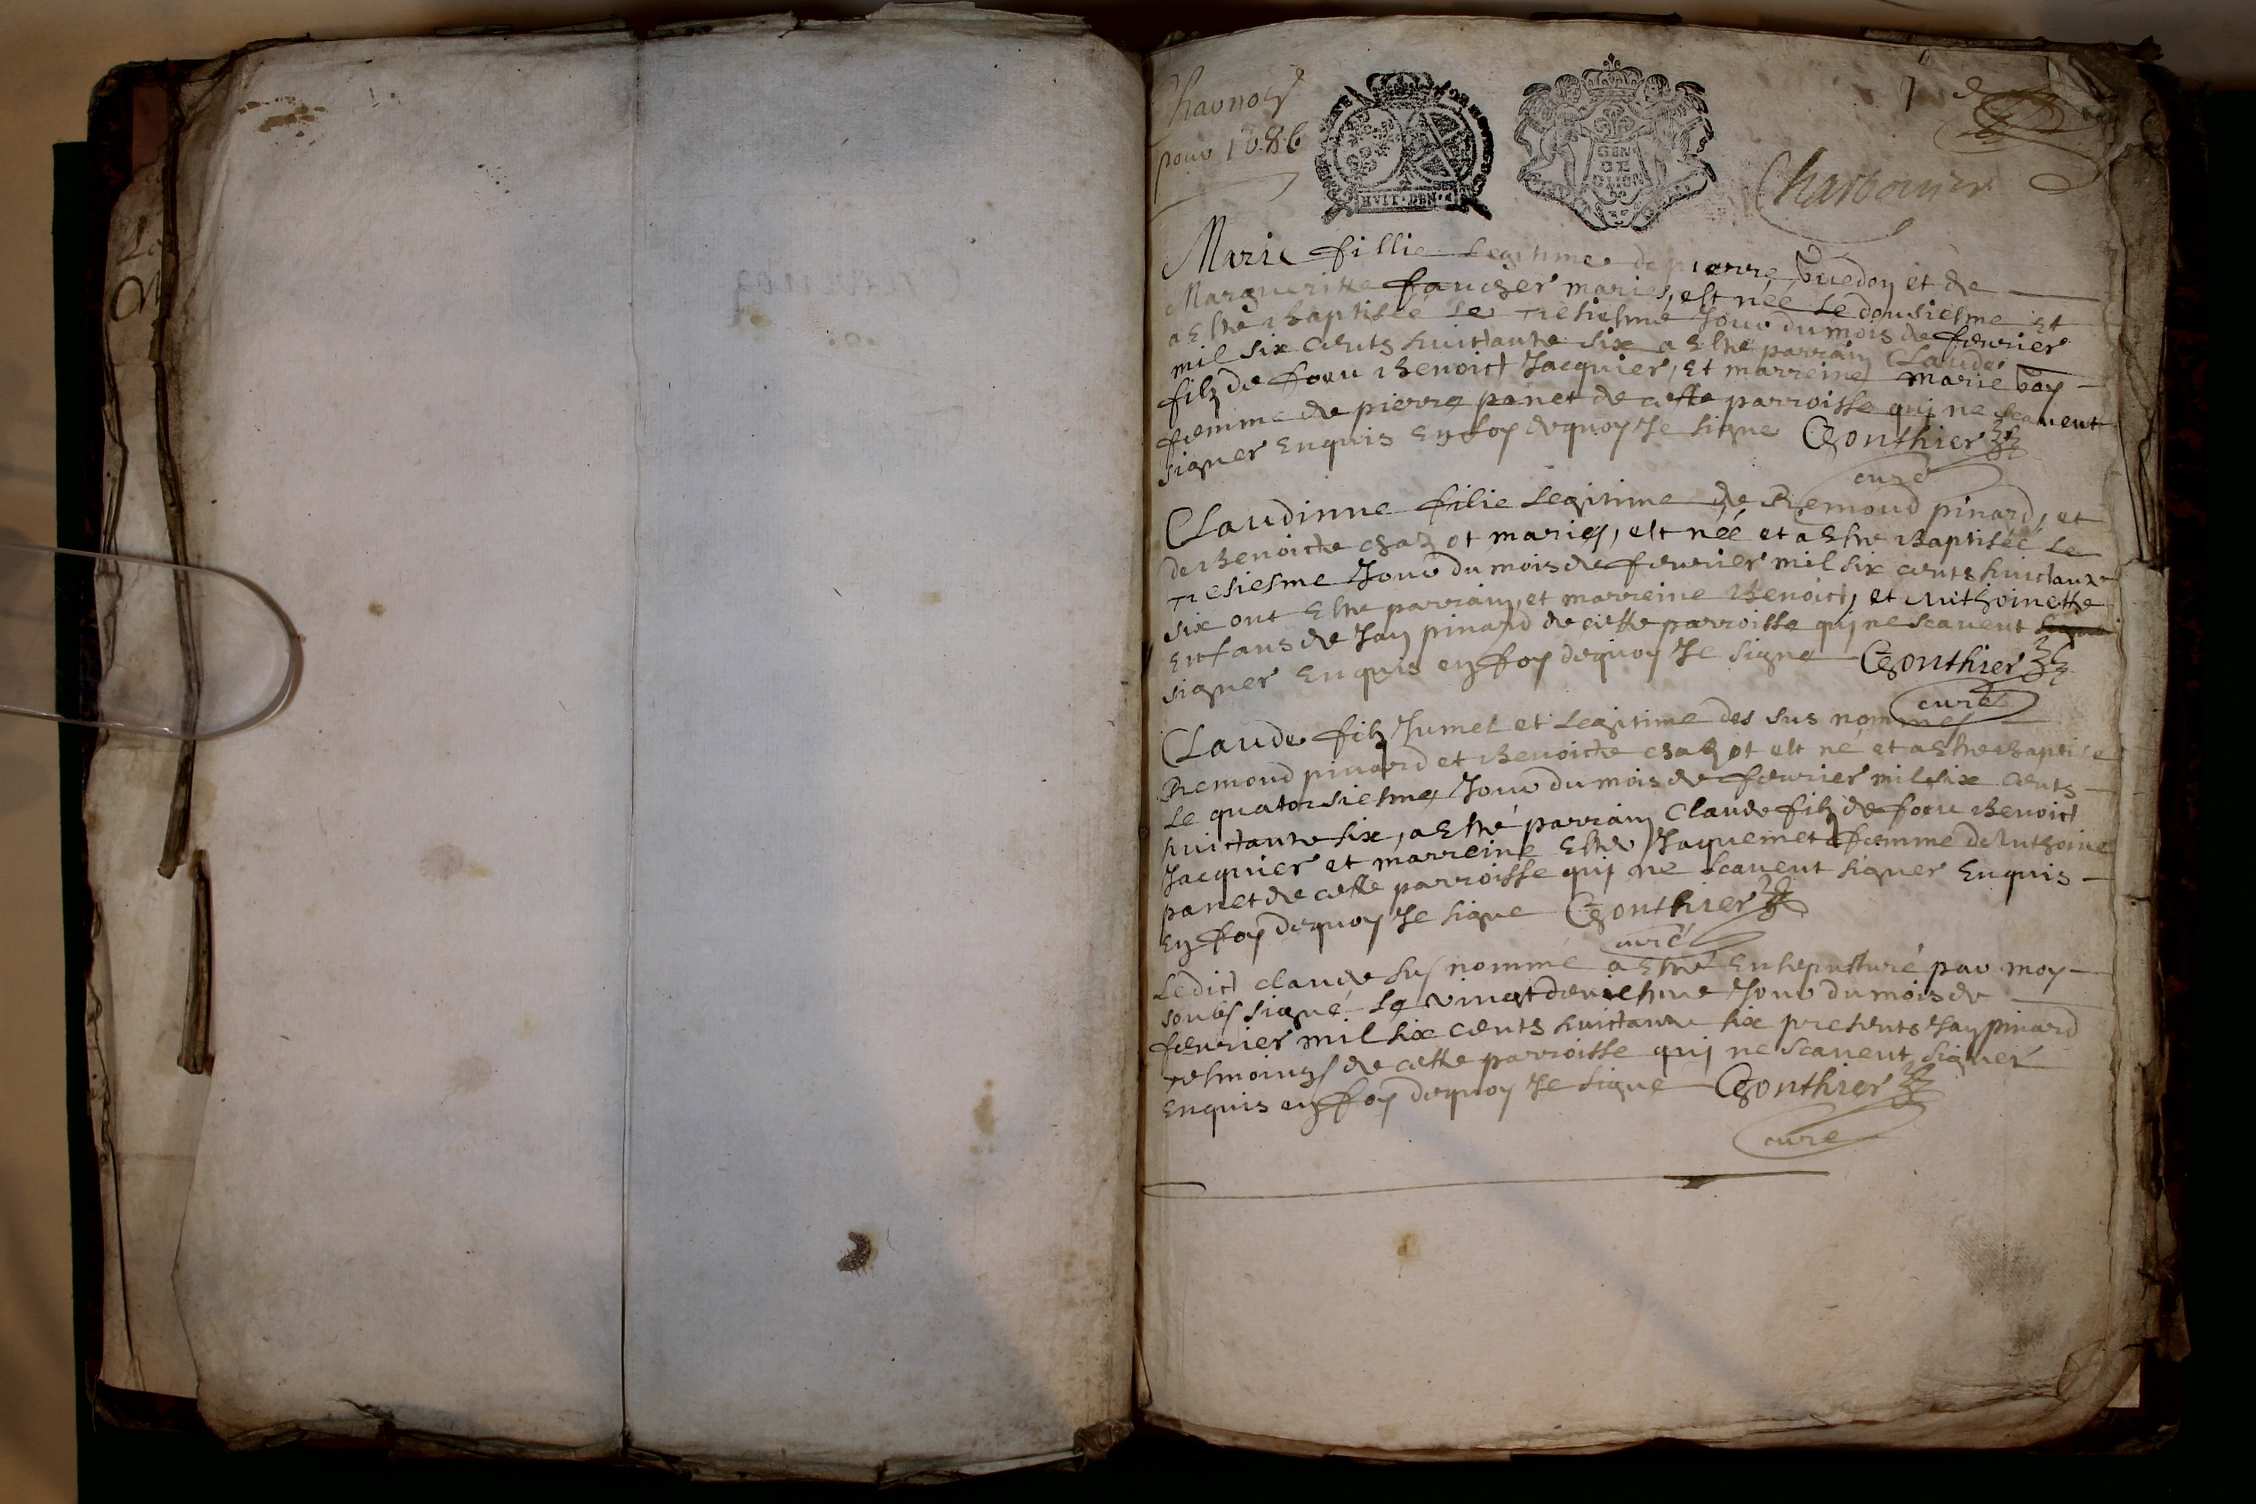 Chavnoz
pour 1686
HVIT·DEN·
GEN
DE
Charbonnier
Marie fillie Legitime de pierre Guedoy et de
Margueritte faucher maries, est née Le dousiesme et
a Estre Baptisée Le Tresiesme Jour du mois de febvrier
mil six cents huictante six a Esté parrain Claude
filz de foeu Benoict Jacquier, Et marreine marie bay
foemme de pierre panet de cette parroisse qui ne scavent
signer Enquis En foy de quoy Je signe Gonthier
curé
Claudinne filie Legitime de Remond pinard, et
de Benoicte chazot maries, est née et a Estre Baptisée Le
Tresiesme Jour du mois de foevrier mil six cents huictante
six ont Estre parrain, et marreine Benoict, et Anthoinette
Enfans de Jan pinard de cette parroisse qui ne scavent
signer Enquis en foy de quoy Je signe Gonthier
curé
Claude filz Jumel et Legitime des sus nommés
Remond pinard et Benoicte chazot est né et a Estre baptisé
Le quatorsiesme Jour du mois de foevrier mil six cents
huictante six, a Esté parrain Claude filz de foeu Benoict
Jacquier et marreine Jaquemet foemme d'Anthoine
panet de cette parroisse qui ne scavent signer Enquis
En foy de quoy Je signe Gonthier
curé
Ledict claude sus nommé a Estré Ensepulturé par moy
soubs signé Le vingt deuxiesme Jour du mois de
foevrier mil six cents huictante six presents Jan pinard
tesmoings de cette parroisse qui ne scavent signer
Enquis en foy de quoy Je signe Gonthier
curé